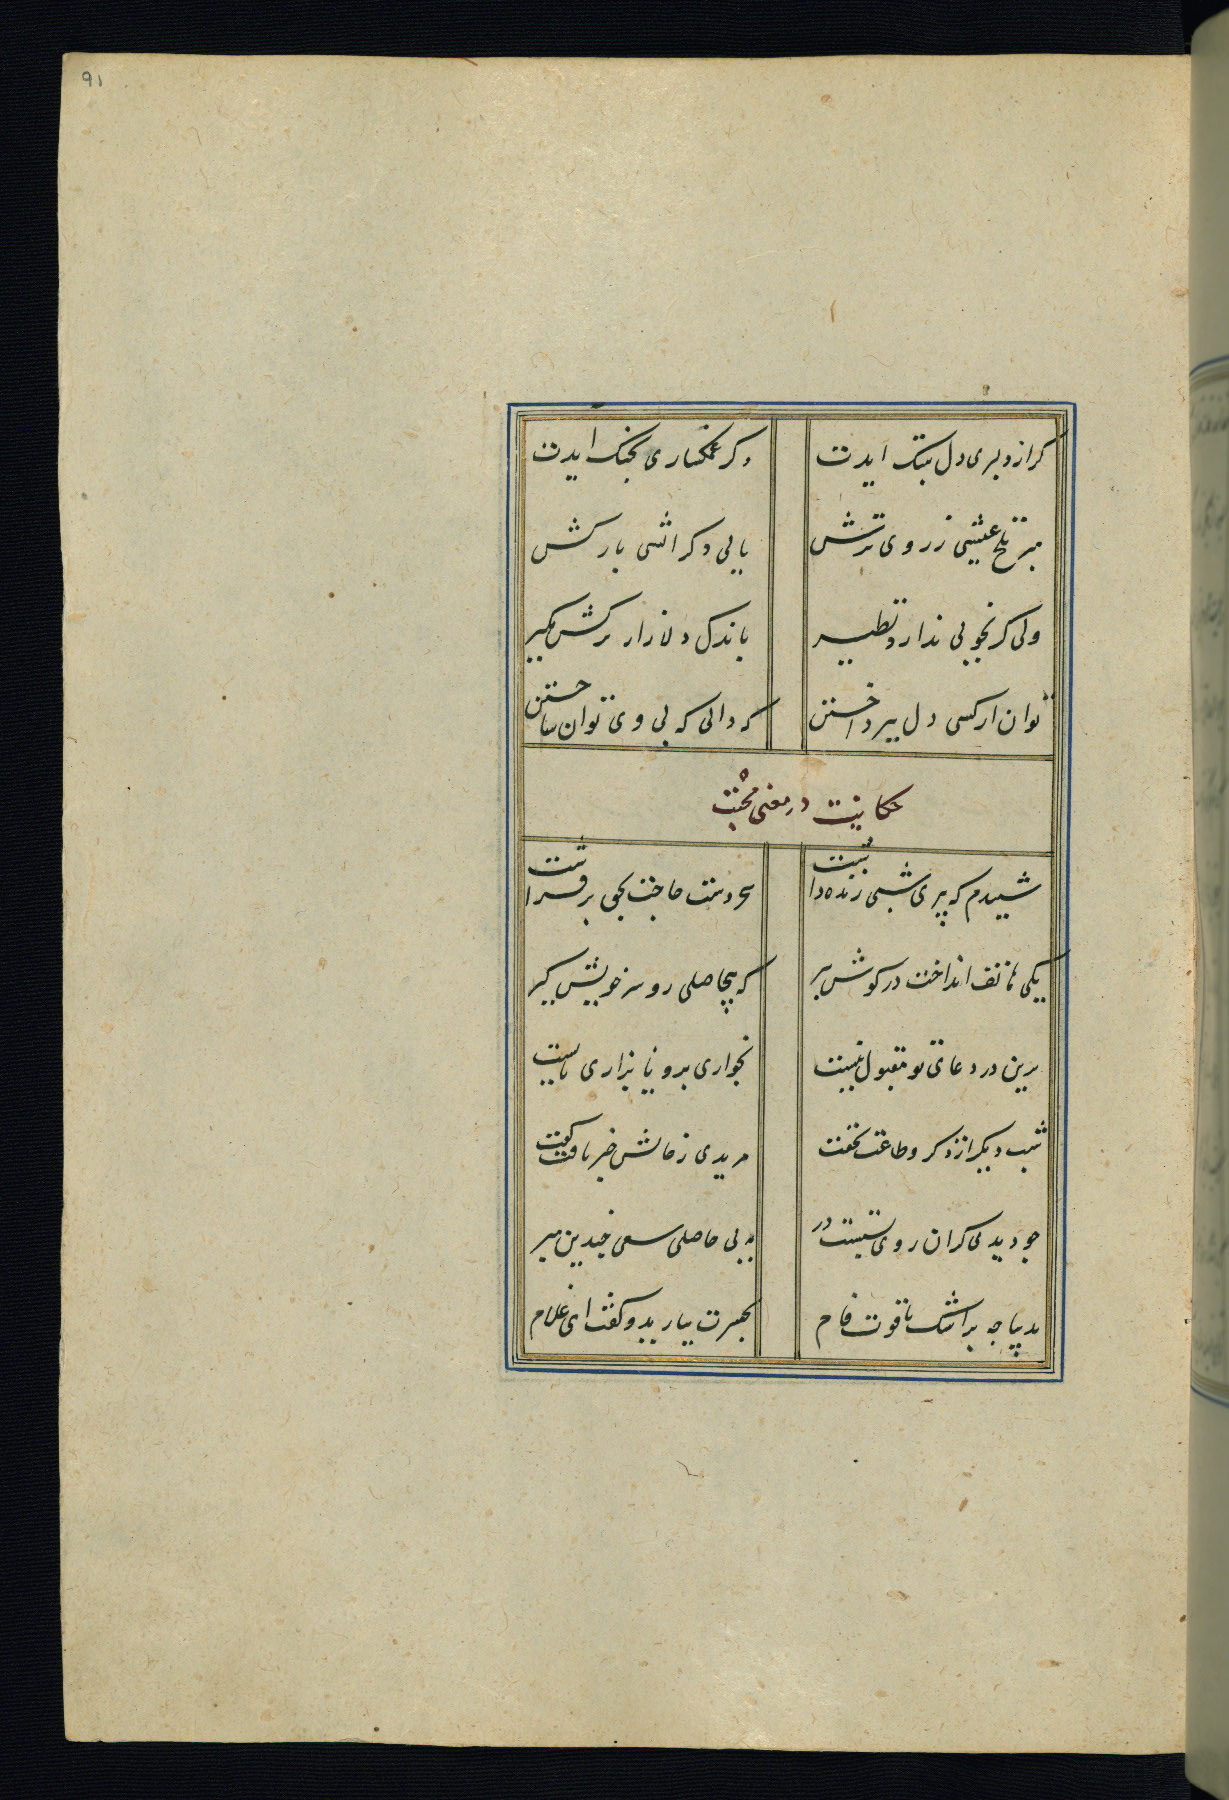 ۹۱
گر از دلبری دل بتنگ ایدت دگر غمگساری بچنگ ایدت
مبر تلخ عیشی ز روی ترش بابی دگر اتشی بازکش
ولی گر بخوبی ندارد نظیر باندک دلازار ترکش مگیر
توان از کسی دل بپرداختن که دانی که بی وی توان ساختن
حکایت در معنی محبت
شنیدم که پیری شبی زنده داشت سحر دست حاجت بحق برفراشت
یکی هاتف انداخت در گوش پیر که بیحاصلی رو سر خویش گیر
برین در دعای تو مقبول نیست بخواری برو یا بزاری بایست
شب دیگر از ذکر و طاعت نخفت مریدی ز حالش خبر یافت گفت
چو دیدی کزان روی بستست در به بی حاصلی سعی چندین مبر
بدیباجه بر اشک یاقوت فام بحسرت ببارید و گفت ای غلام